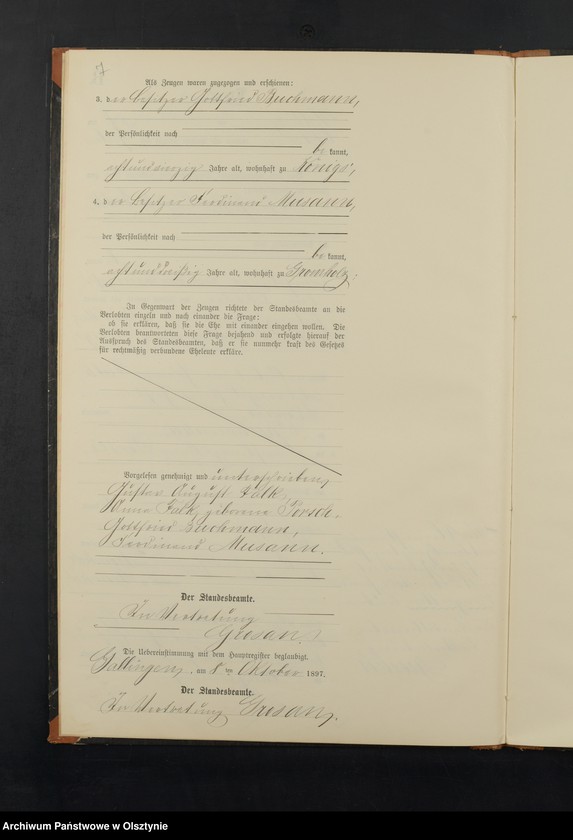 Als Zeugen waren zugezogen und erschienen:
3. der Besitzer Gottfried Buchmann,
der Persönlichkeit nach
bekannt,
achtundvierzig Jahre alt, wohnhaft zu
4. der Besitzer Ferdinand Musann,
der Persönlichkeit nach
bekannt,
achtunddreißig Jahre alt, wohnhaft zu
In Gegenwart der Zeugen richtete der Standesbeamte an die
Verlobten einzeln und nach einander die Frage:
ob sie erklären, daß sie die Ehe mit einander eingehen wollen. Die
Verlobten beantworteten diese Frage bejahend und erfolgte hierauf der
Ausspruch des Standesbeamten, daß er sie nunmehr kraft des Gesetzes
für rechtmäßig verbundene Eheleute erkläre.
Vorgelesen genehmigt und unterschrieben,
Gustav August Falk,
Anna Falk, geborene
Gottfried Buchmann,
Ferdinand Musann.
Der Standesbeamte.
In Vertretung
Die Uebereinstimmung mit dem Hauptregister beglaubigt.
Gallingen, am 8ten Oktober 1897.
Der Standesbeamte.
In Vertretung
Archiwum Państwowe w Olsztynie